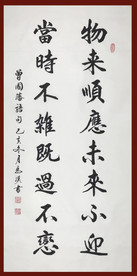 物来順應未来不迎
當時不雜既過不戀
曾國藩語句己亥冬月書